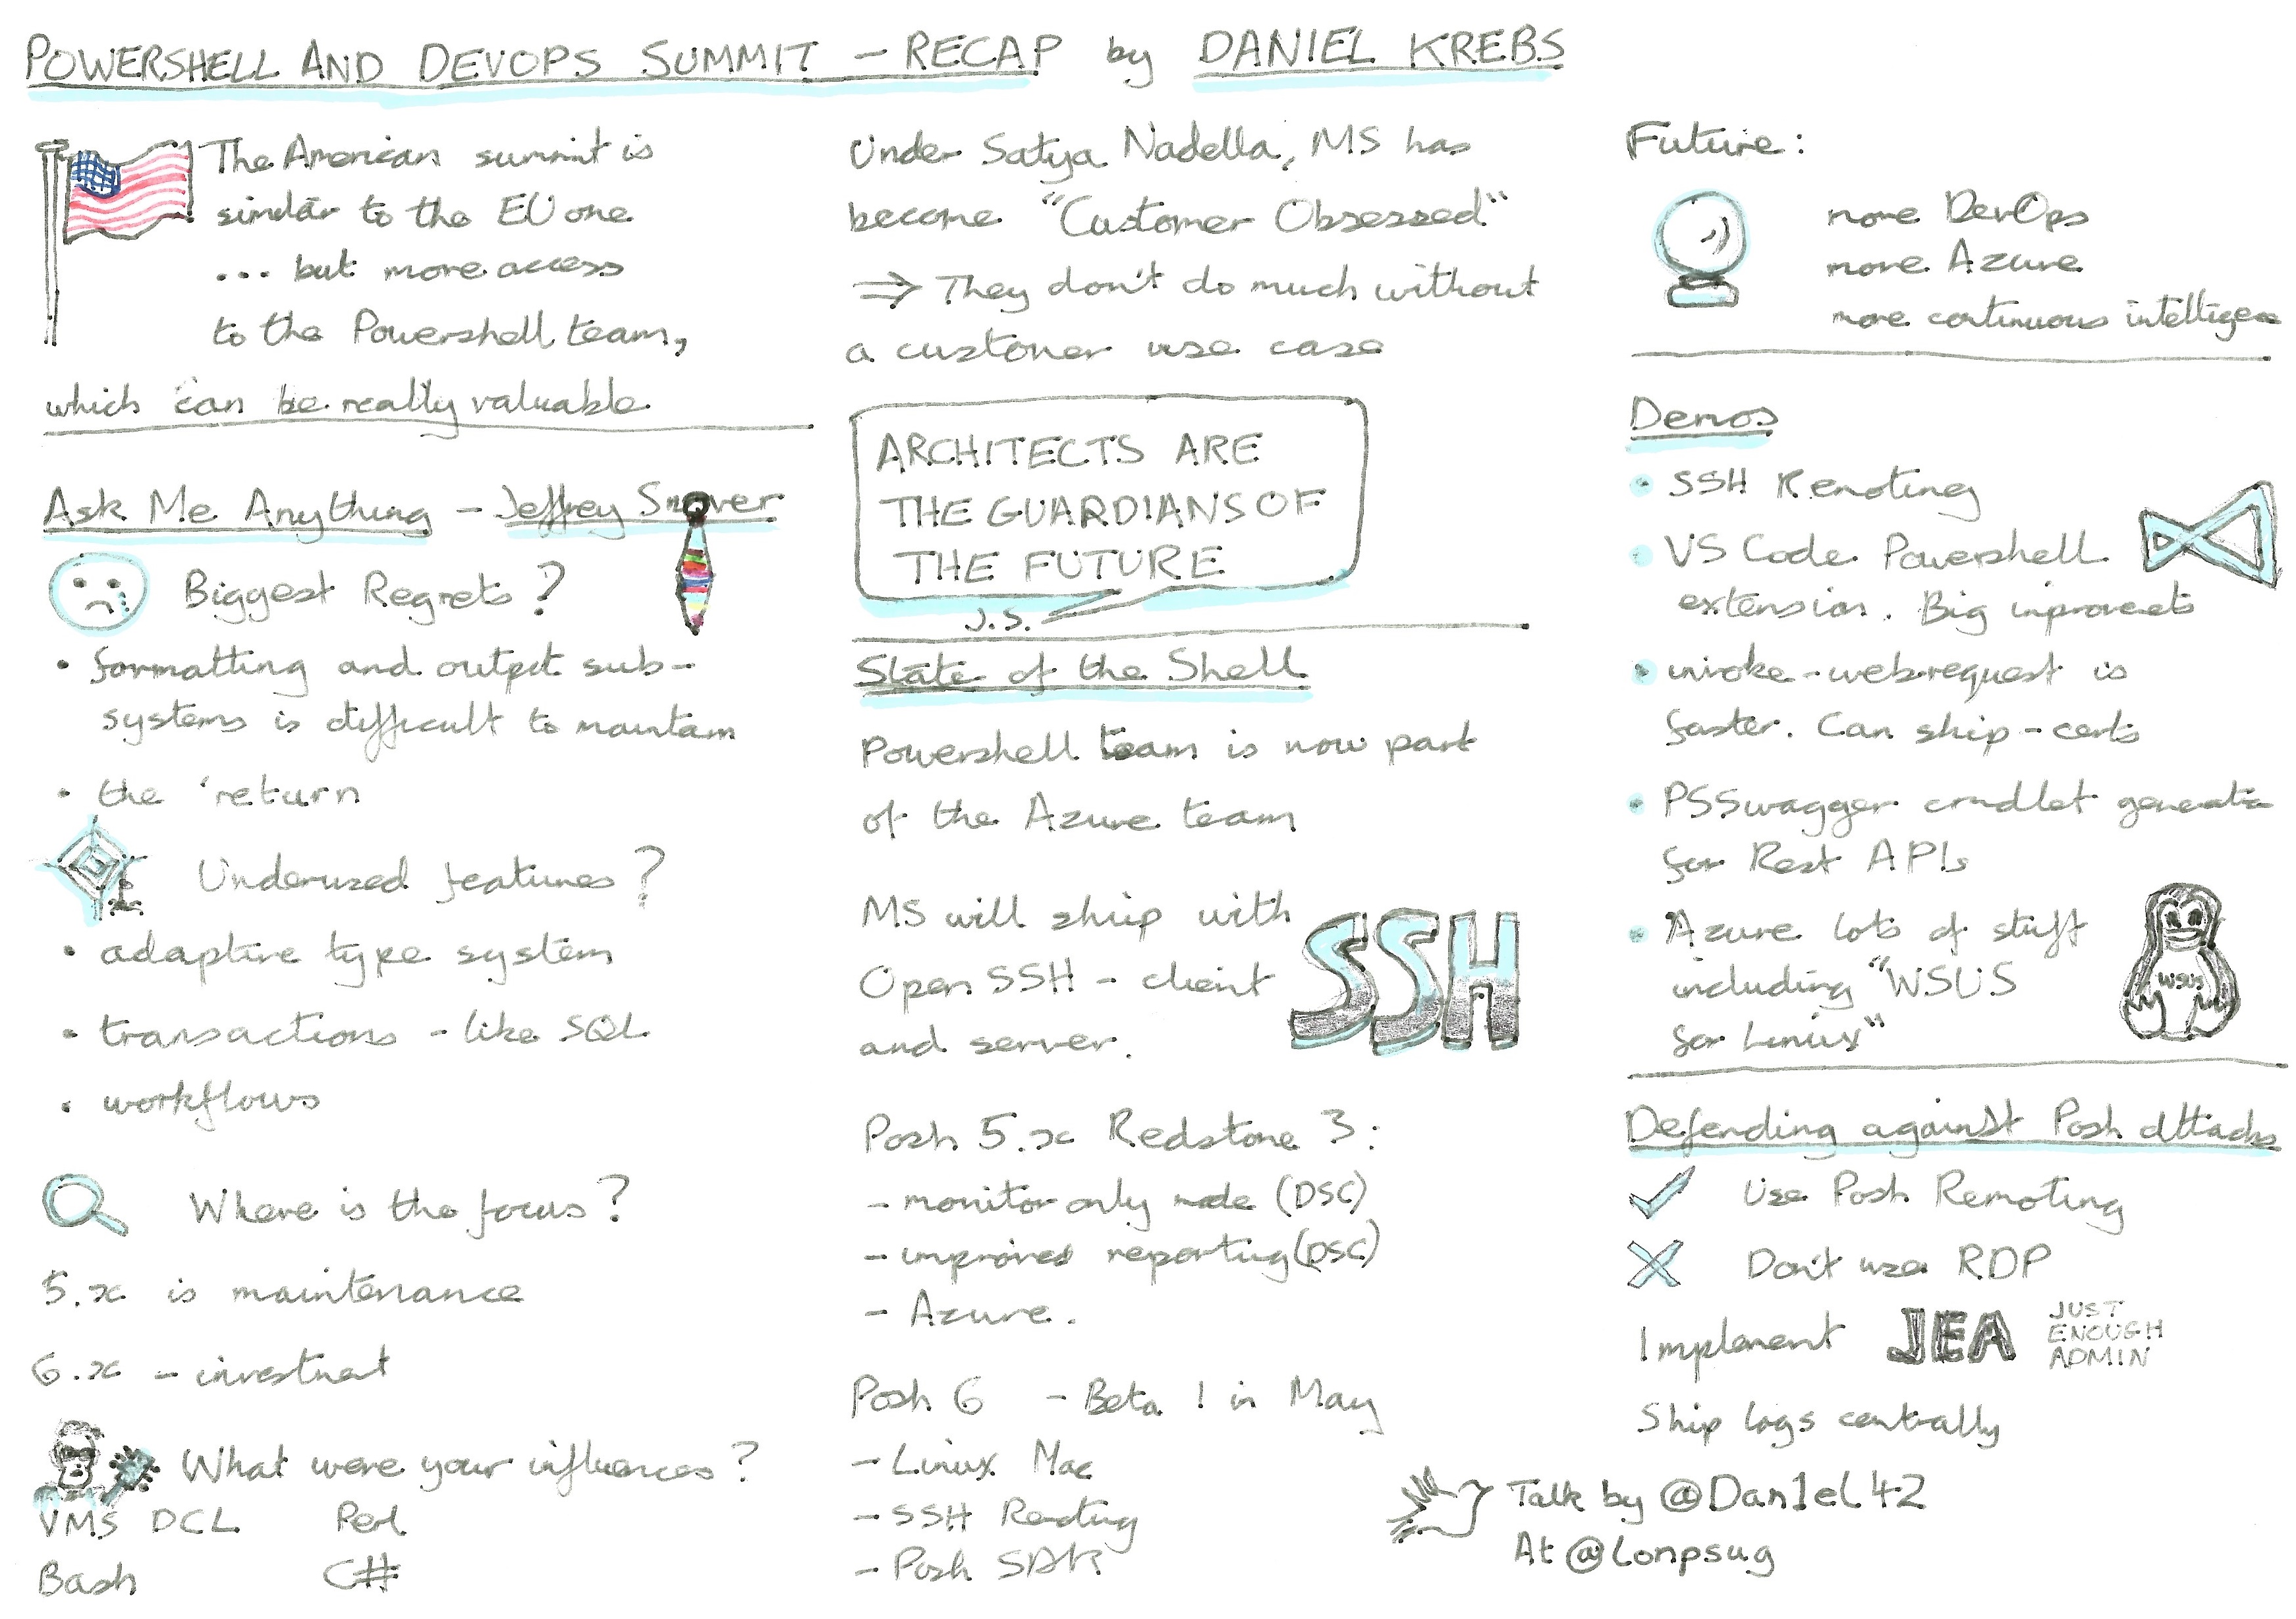 POWERSHELL AND DEVOPS SUMMIT - RECAP by DANIEL KREBS
The American summit is
similar to the EU one
... but more access
to the Powershell team,
which can be really valuable
Ask Me Anything - Jeffrey Snover
Biggest Regrets?
• formatting and output sub-
systems is difficult to maintain
• the 'return
Underused features?
• adaptive type system
• transactions - like SQL
• workflows
Where is the focus?
5.x is maintenance
6.x - investmet
What were your influences?
VMS DCL Perl
Bash C#
Under Satya Nadella, MS has
become "Customer Obsessed"
⇒ They don't do much without
a customer use case
ARCHITECTS ARE
THE GUARDIANS OF
THE FUTURE
J.S.
State of the Shell
Powershell team is now part
of the Azure team
MS will ship with
Open SSH - client
and server.
SSH
Posh 5.x Redstone 3:
- monitor only mode (DSC)
- improved reporting (DSC)
- Azure.
Posh 6 - Beta 1 in May
- Linux Mac
- SSH Remoting
- Posh SDK
Future:
more DevOps
more Azure
more continuous intelligence
Demos
• SSH Remoting
• VS Code Powershell
extension. Big improvemets
• invoke-webrequest is
faster. Can ship-certs
• PSSwagger cmdlet generatio
for Rest APIs
• Azure lots of stuff
including "WSUS
for Linux"
WSUS
Defending against Posh attacks
Use Posh Remoting
Don't use RDP
Implement JEA JUST
ENOUGH
ADMIN
Ship logs centrally
Talk by @Dan1el42
At @lonpsug